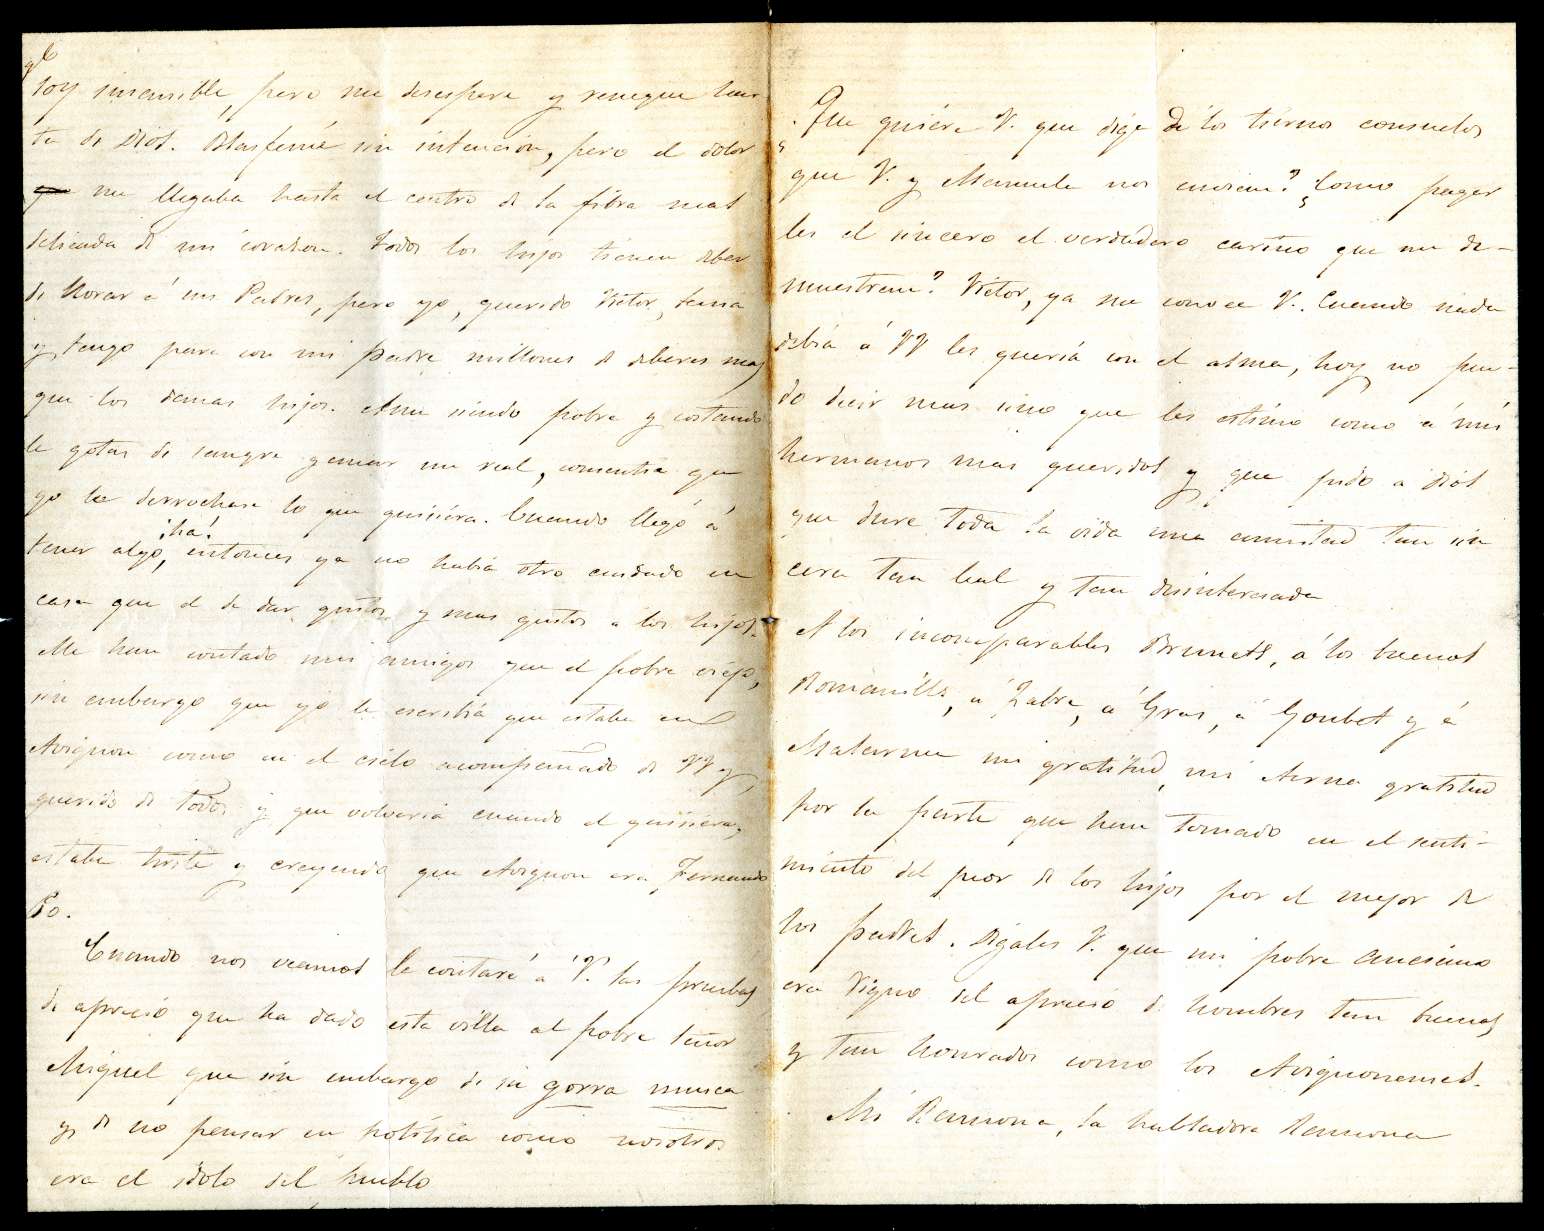 qe
soy insensible, pero me desespere y renegue has-
ta de Dios. Blasfemé sin intencion, pero el dolor
me llegaba hasta el centro de la fibra mas
delicada de mi corazon. Todos los hijos tienen deber
de llorar á sus Padres, pero yo, querido Victor, tenia
y tengo para con mi padre millones de deberes mas
que los demas hijos. Aun siendo pobre y costando
le gotas de sangre ganar un real, consentia que
yo le derrochase lo que quisiera. Cuando llegó á
tener algo, ¡ha! entonces ya no habia otro cuidado en
casa que el de dar gustos y mas gustos a los hijos.
Me han contado mis amigos que el pobre viejo,
sin embargo que yo le escribiá que estaba en
Avignon como en el cielo acompañado de VV y
querido de todos y que volveria cuando el quisiera,
estaba triste y creyendo que Avignon era Fernando
Po.
Cuando nos veamos le contaré á V. las pruebas
de aprecio que ha dado esta villa al pobre señor
Miguel que sin embargo de su gorra musca
y de no pensar en politica como nosotros
era el idolo del pueblo
¿Que quiere V. que diga de los tiernos consuelos
que V. y Manuela nos envian? ¿Como pagar
les el sincero el verdadero cariño que me de-
muestran? Victor, ya me conoce V. Cuando nada
debiá á VV les queriá con el alma, hoy no pue-
do decir mas sino que les estimo como á mis
hermanos mas queridos y que pido a Dios
que dure toda la vida una amistad tan sin
cera tan leal y tan desinteresada
A los incomparables Brunets, á los buenos
Romanills, á Fabre, á Gras, á Goubet y á
Malarma mi gratitud, mi eterna gratitud
por la parte que han tomado en el senti-
miento del peor de los hijos por el mejor de
los padres. Digales V. que mi pobre anciano
era digno del aprecio de hombres tan buenos
y tan honrados como los Avignonenses.
Mi Ramona, la habladora Ramona